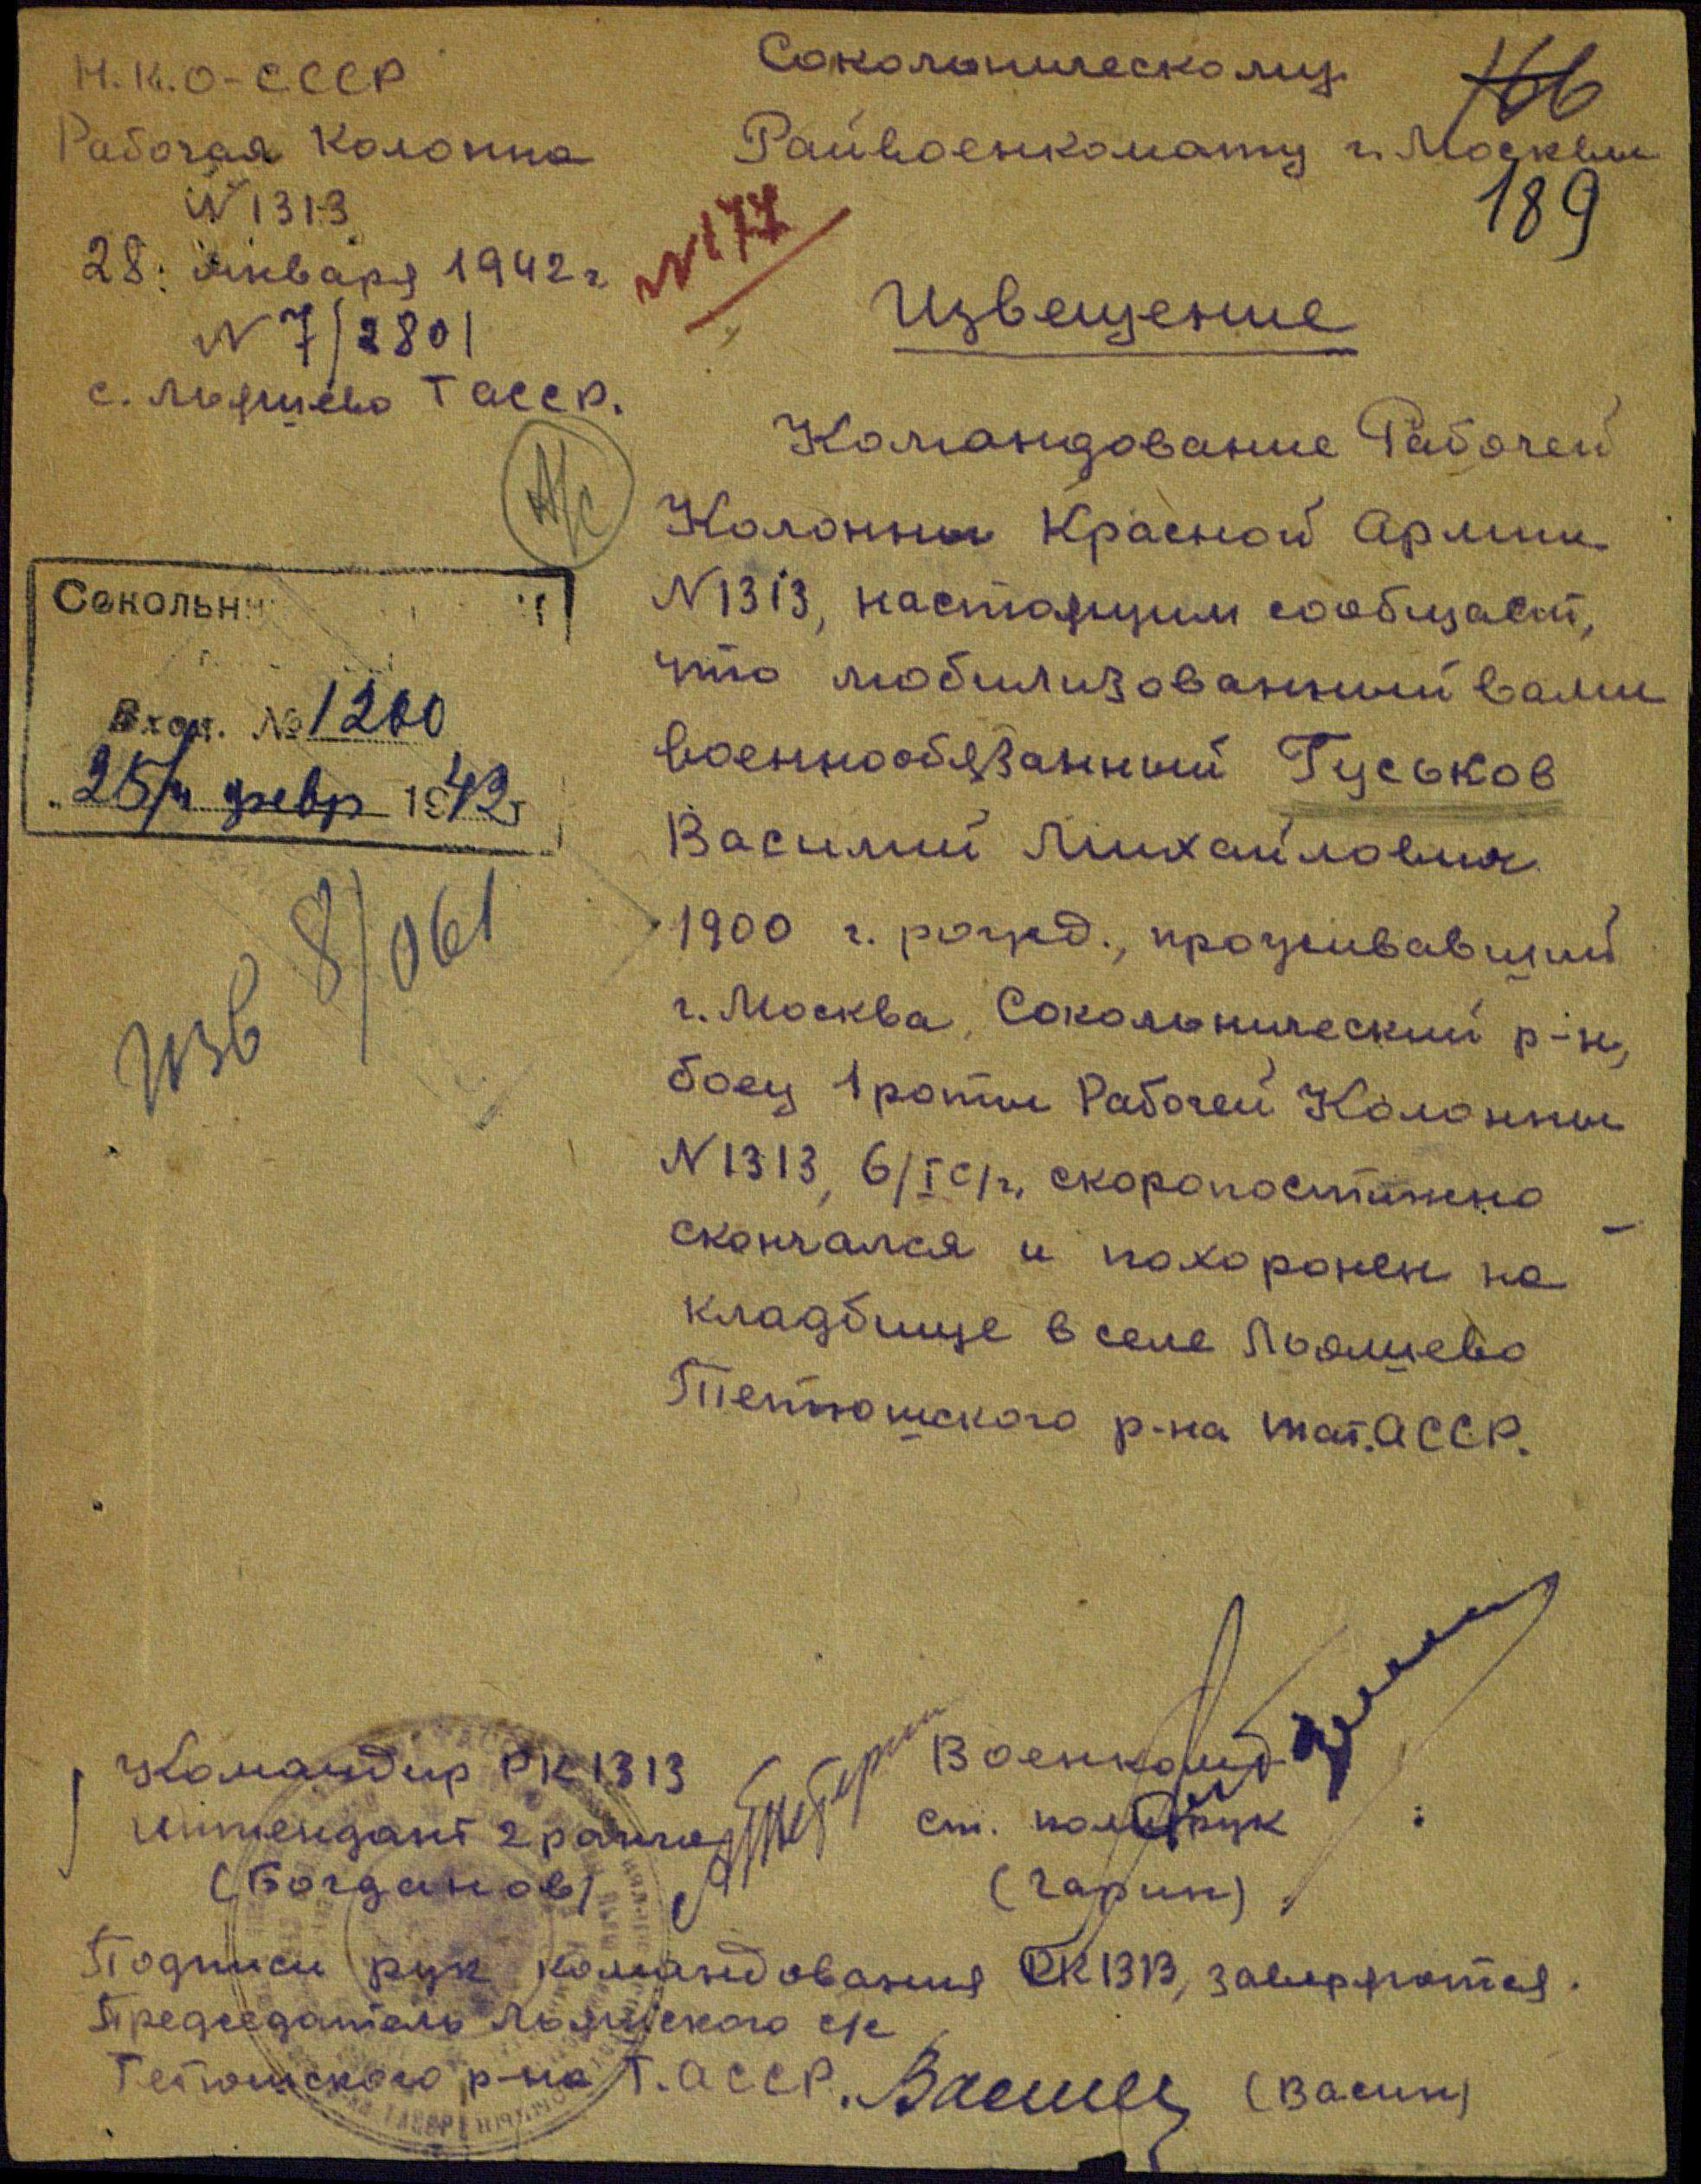 Н.К.О-СССР
Рабочая Колонна
N1313
28. января 1942 г
N 7/2801
с. Льяшево ТАССР.
Сокольническому
Райвоенкомату г. Москвы
166
189
N177
Извещение
Командование Рабочей
Колонны Красной Армии
N1313, настоящим сообщает,
что мобилизованный вами
военнообязанный Гуськов
Василий Михайлович
1900 г. рожд., проживавший
г. Москва, Сокольнический р-н,
боец 1 роты Рабочей Колонны
N1313, 6/I с/г, скоропостижно
скончался и похоронен на
кладбище в селе Льяшево
Тетюшского р-на Тат.АССР.
Сокольн
Вход. № 1200
25/II февр 1942 г
изв 8/061
Командир РК1313
интендант 2 ранга
(Богданов)
Военком
ст. политрук
(Гарин)
Подписи рук командования РК1313, заверяются.
Председатель Льяшского с/с
Тетюшского р-на Т.АССР. (Васин)